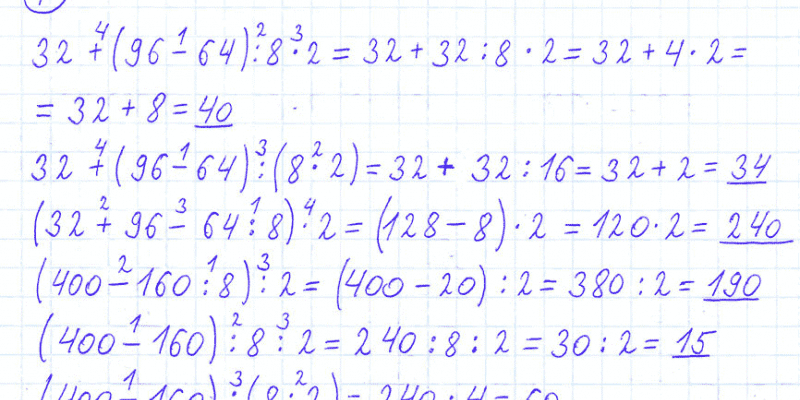 32 + (96 - 64) : 8 · 2 = 32 + 32 : 8 · 2 = 32 + 4 · 2 =
= 32 + 8 = 40
32 + (96 - 64) : (8 · 2) = 32 + 32 : 16 = 32 + 2 = 34
(32 + 96 - 64 : 8) · 2 = (128 - 8) · 2 = 120 · 2 = 240
(400 - 160 : 8) : 2 = (400 - 20) : 2 = 380 : 2 = 190
(400 - 160) : 8 : 2 = 240 : 8 : 2 = 30 : 2 = 15